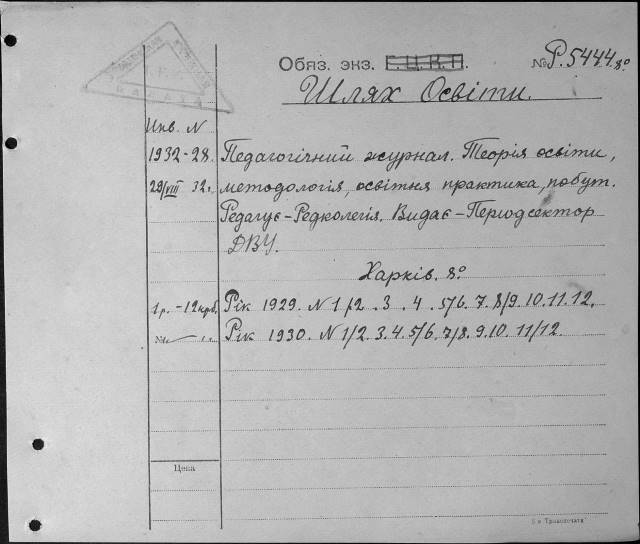 Обяз. экз. Г.Ц.К.П. № Р.5444 8°
Шлях Освіти.
Инв. N
1932-28. Педагогічний журнал. Теорія освіти,
29/VIII 32 г. методологія, освітня практика, побут.
Редагує-Редколегія. Видає-Періодсектор
ДВУ.
Харків. 8°
1 р. - 12 крб. Рік 1929. N 1/2 . 3 . 4 . 5/6. 7. 8/9. 10. 11. 12.
Рік 1930. N 1/2. 3. 4. 5/6. 7/8. 9. 10. 11/12.
Цена